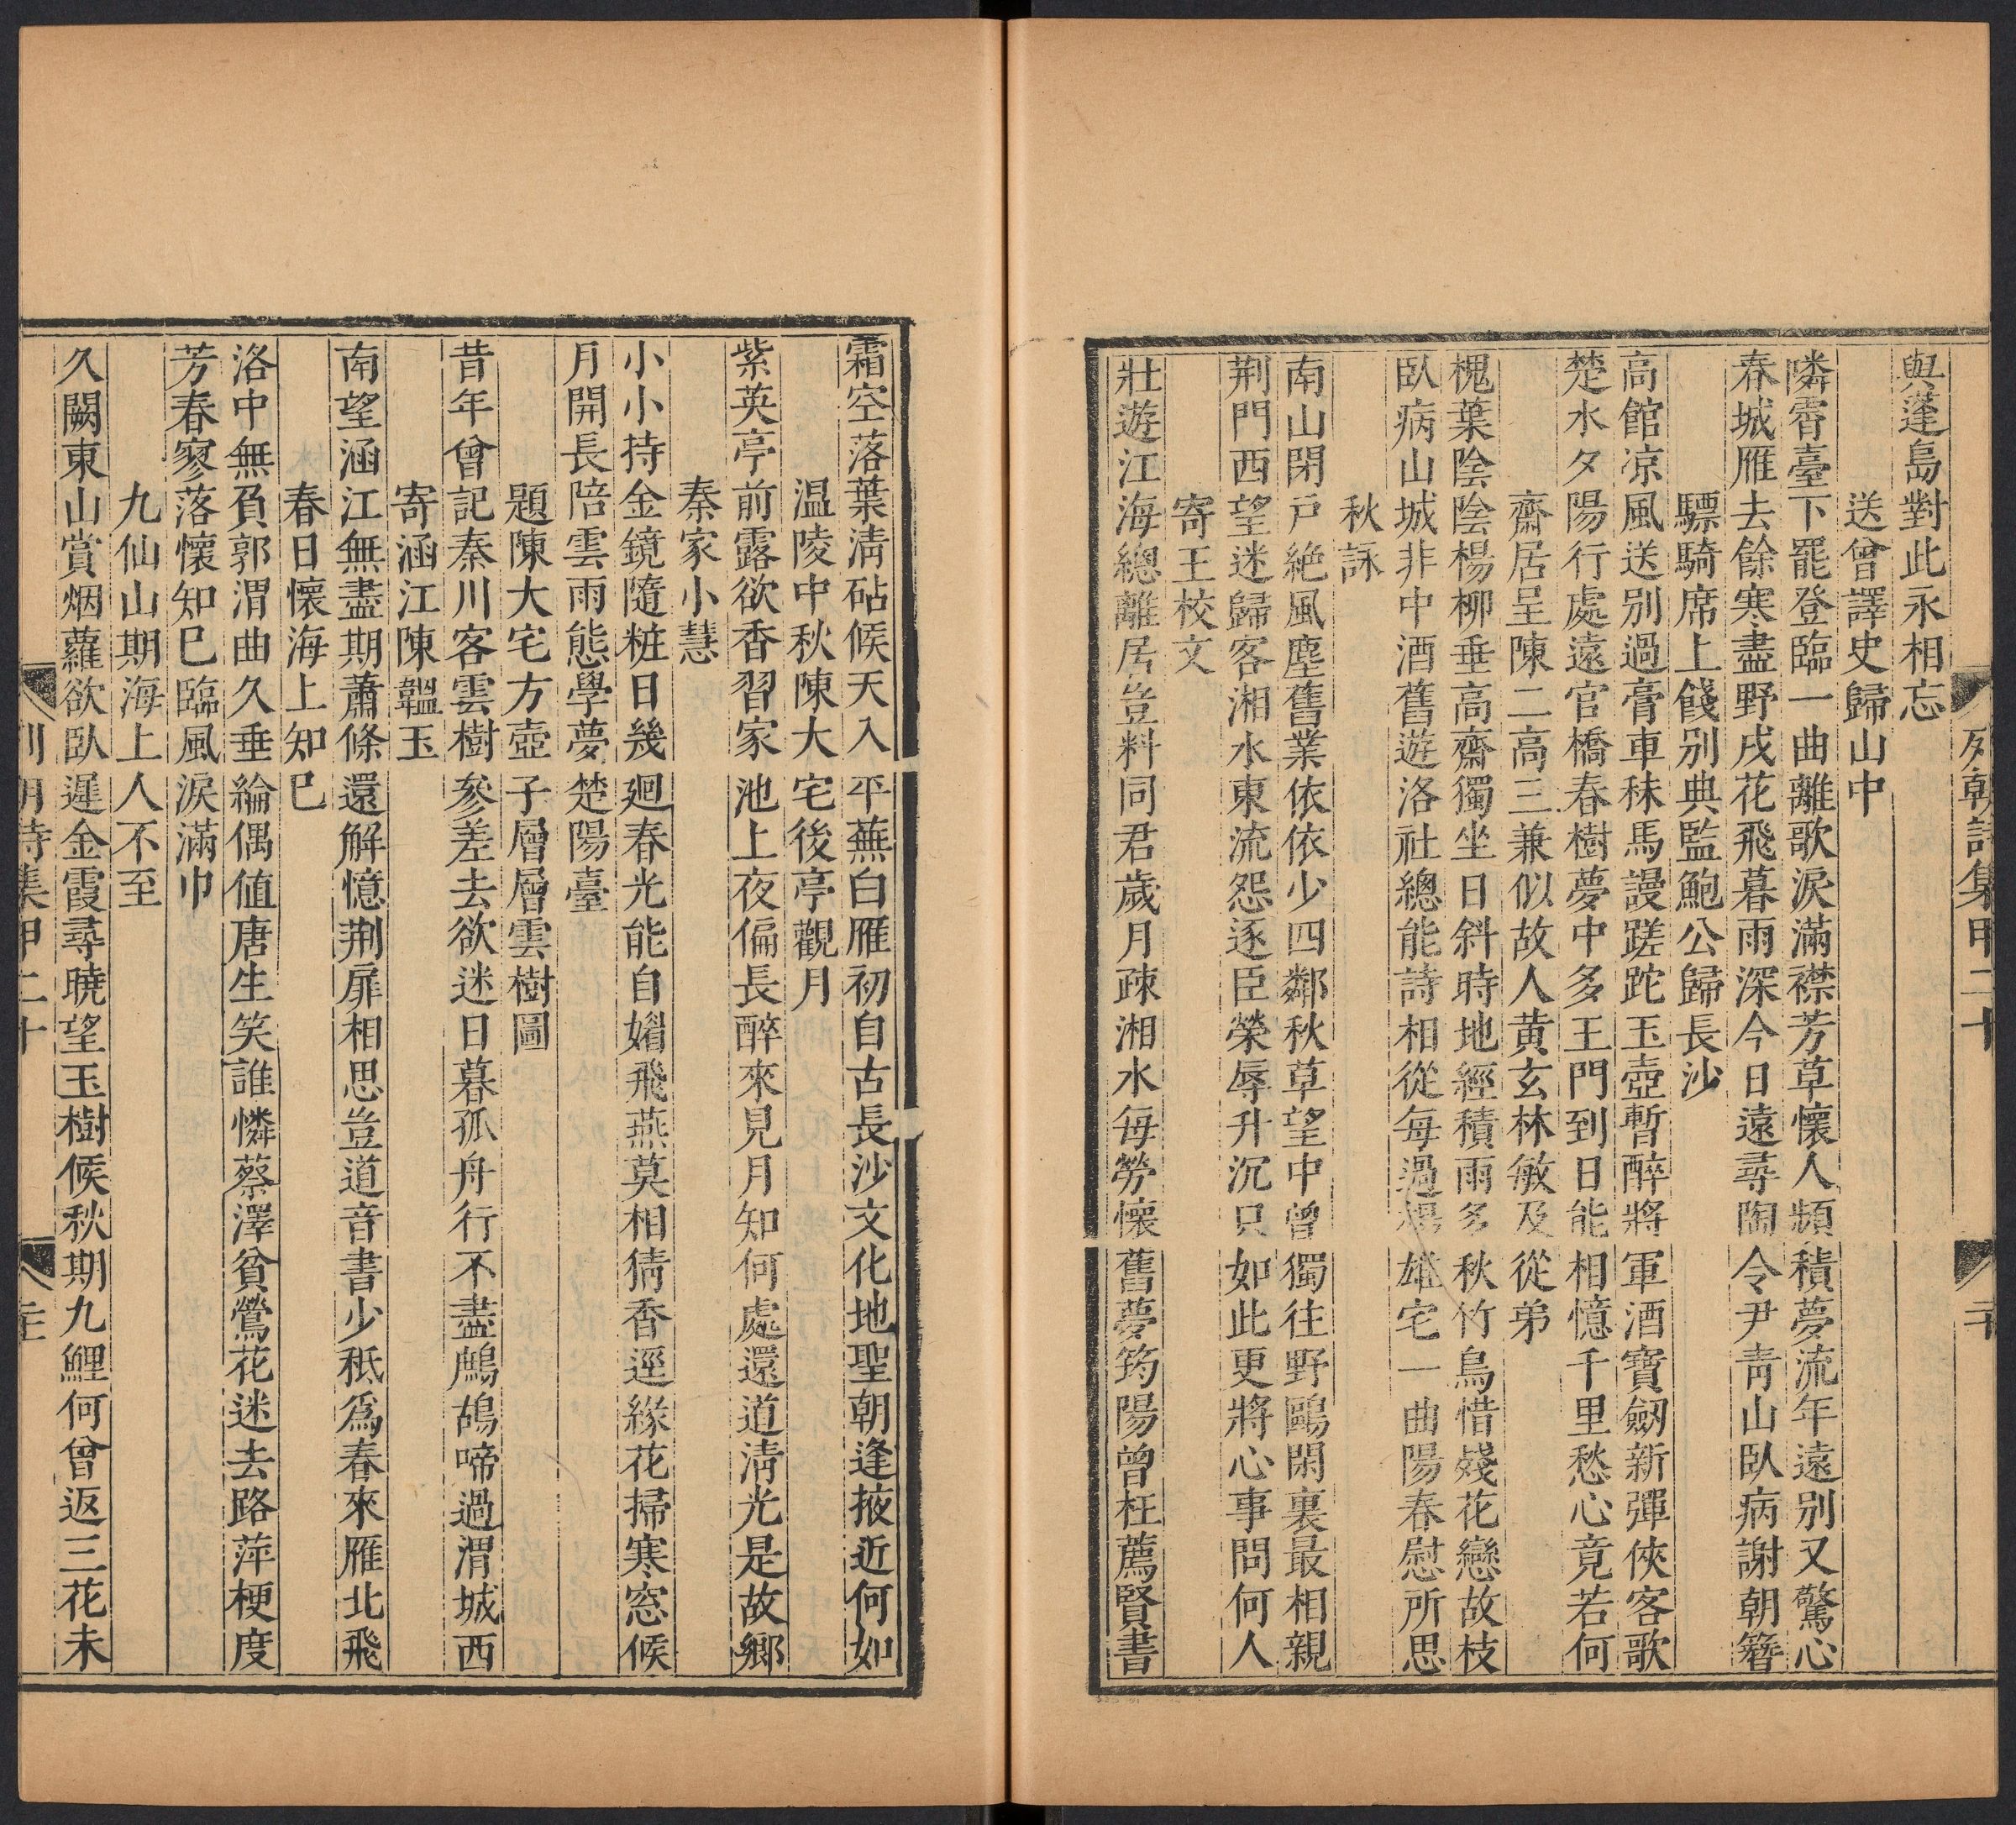 列朝詩集甲二十
二十
與蓬島對此永相忘
送曾譯史歸山中
隣霄臺下罷登臨一曲離歌淚滿襟芳草懷人頻積夢流年遠別又驚心
春城雁去餘寒盡野戍花飛暮雨深今日遠尋陶令尹青山臥病謝朝簪
驃騎席上餞別典監鮑公歸長沙
高館凉風送別過膏車秣馬謾蹉跎玉壺暫醉將軍酒寶劒新彈俠客歌
楚水夕陽行處遠官橋春樹夢中多王門到日能相憶千里愁心竟若何
齋居呈陳二高三兼似故人黃玄林敏及從弟
槐葉陰陰楊柳垂高齋獨坐日斜時地經積雨多秋竹鳥惜殘花戀故枝
臥病山城非中酒舊遊洛社總能詩相從每過楊雄宅一曲陽春慰所思
秋詠
南山閉戶絶風塵舊業依依少四鄰秋草望中曾獨往野鷗閑裏最相親
荆門西望迷歸客湘水東流怨逐臣榮辱升沉只如此更將心事問何人
寄王校文
壯遊江海總離居豈料同君歲月疎湘水每勞懷舊夢筠陽曾枉薦賢書
霜空落葉淸砧候天入平蕪白雁初自古長沙文化地聖朝逢掖近何如
温陵中秋陳大宅後亭觀月
紫英亭前露欲香習家池上夜偏長醉來見月知何處還道淸光是故鄉
秦家小慧
小小持金鏡隨粧日幾廻春光能自媚飛燕莫相猜香逕緣花掃寒窓候
月開長陪雲雨態學夢楚陽臺
題陳大宅方壺子層層雲樹圖
昔年曾記秦川客雲樹參差去欲迷日暮孤舟行不盡鷓鴣啼過渭城西
寄涵江陳韞玉
南望涵江無盡期蕭條還解憶荆扉相思豈道音書少秖爲春來雁北飛
春日懷海上知巳
洛中無負郭渭曲久垂綸偶値唐生笑誰憐蔡澤貧鶯花迷去路萍梗度
芳春寥落懷知巳臨風淚滿巾
九仙山期海上人不至
久闕東山賞烟蘿欲臥遲金霞尋曉望玉樹候秋期九鯉何曾返三花未
列朝詩集甲二十